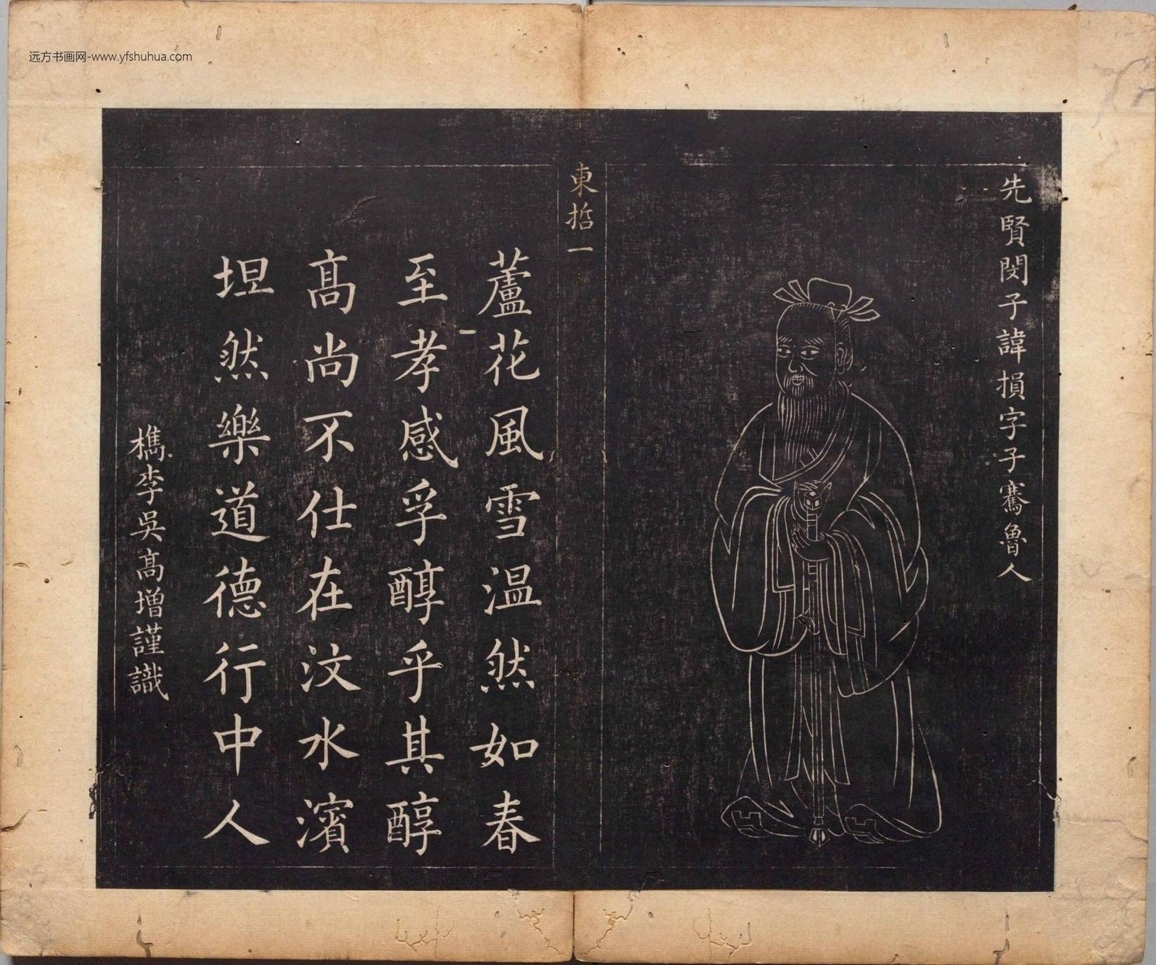 远方书画网-www.yfshuhua.com
先賢閔子諱損字子騫魯人
東哲一
蘆花風雪温然如春
至孝感孚醇乎其醇
高尚不仕在汶水濱
坦然樂道德行中人
檇李吳高增謹識